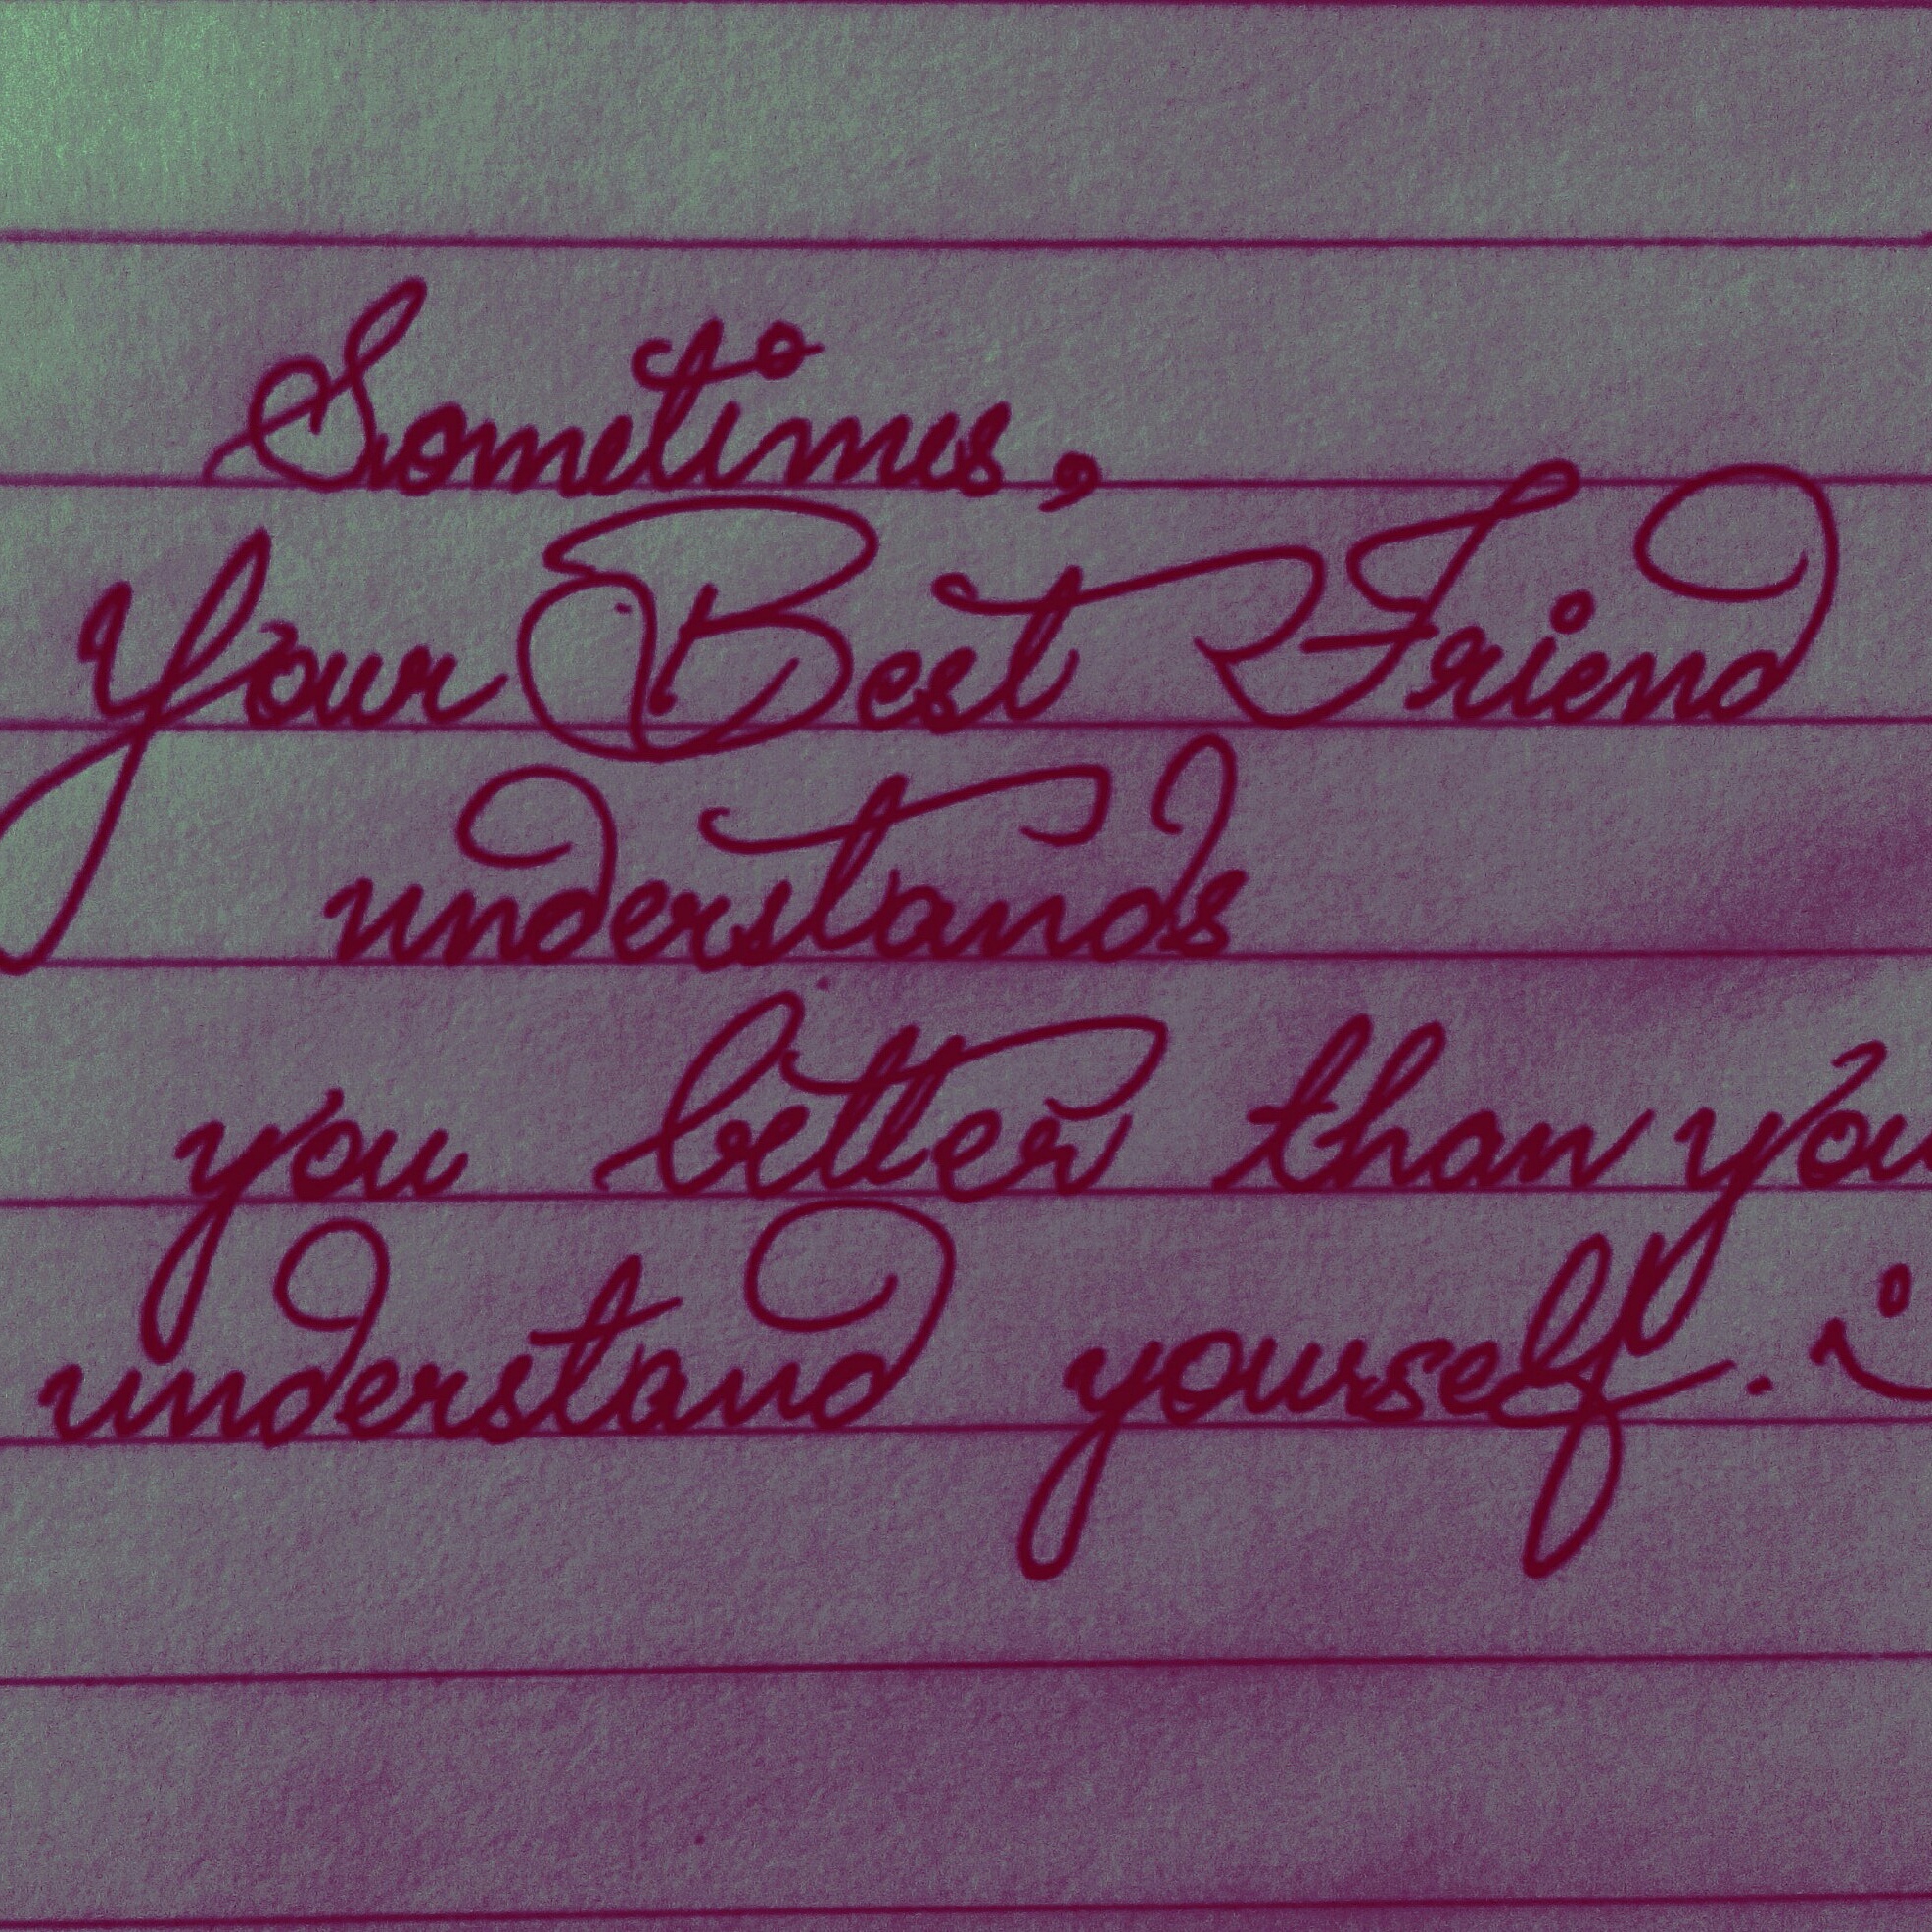 Sometimes,
Your Best Friend
understands
you better than you
understand yourself. :)